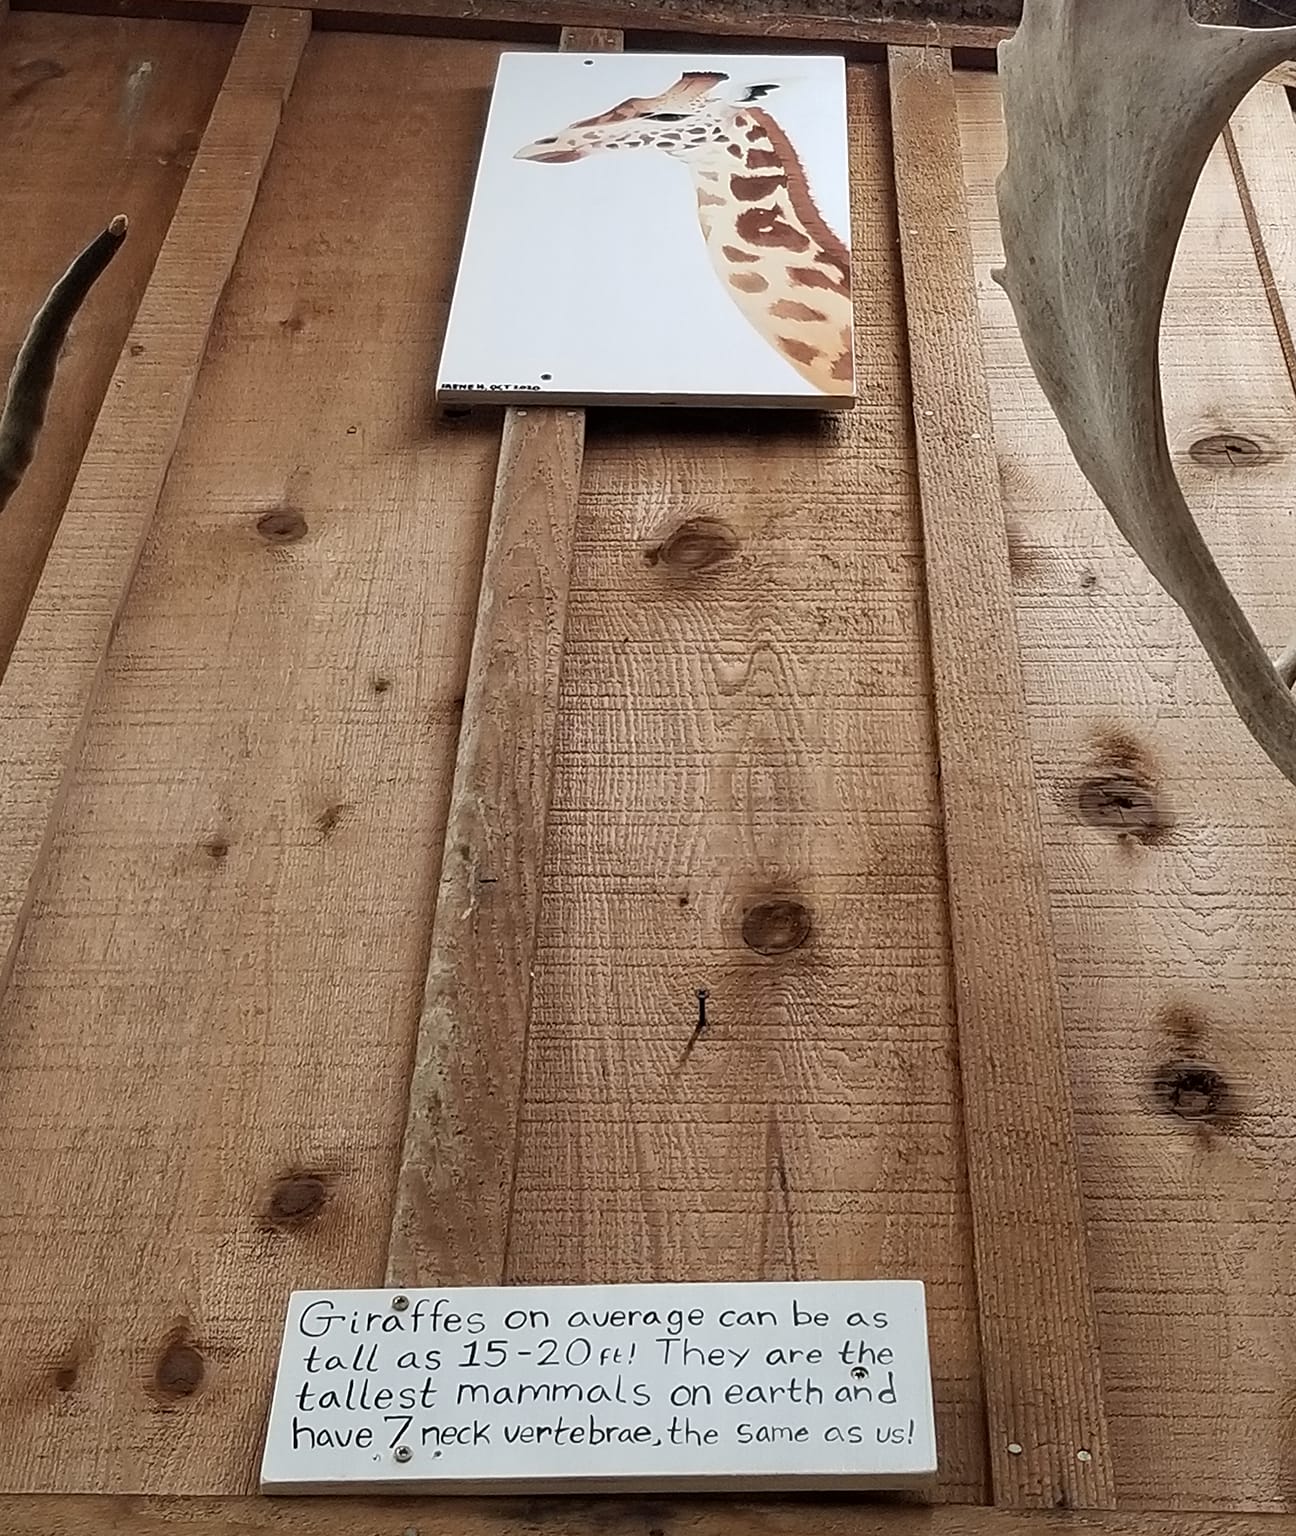 IRENE H. OCT 2020
Giraffes on average can be as
tall as 15-20ft! They are the
tallest mammals on earth and
have 7 neck vertebrae, the same as us!